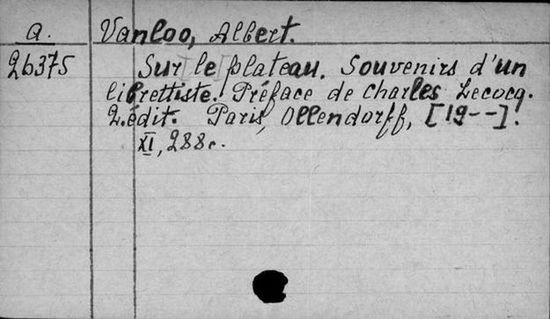 a. Vanloo, Albert.
26375 Sur le plateau. Souvenirs d'un
librettiste. Préface de Charles Lecocq.
2.édit. Paris, Ollendorff, [19--].
XI, 288c.